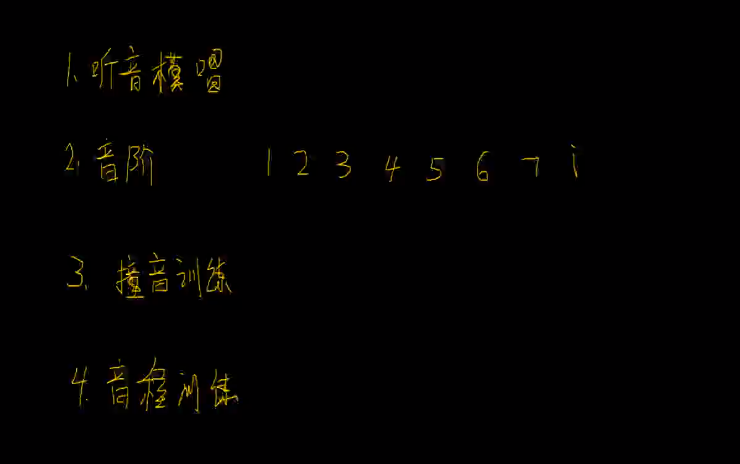 1. 听音模唱
2. 音阶 1 2 3 4 5 6 7 i
3. 撞音训练
4. 音程训练